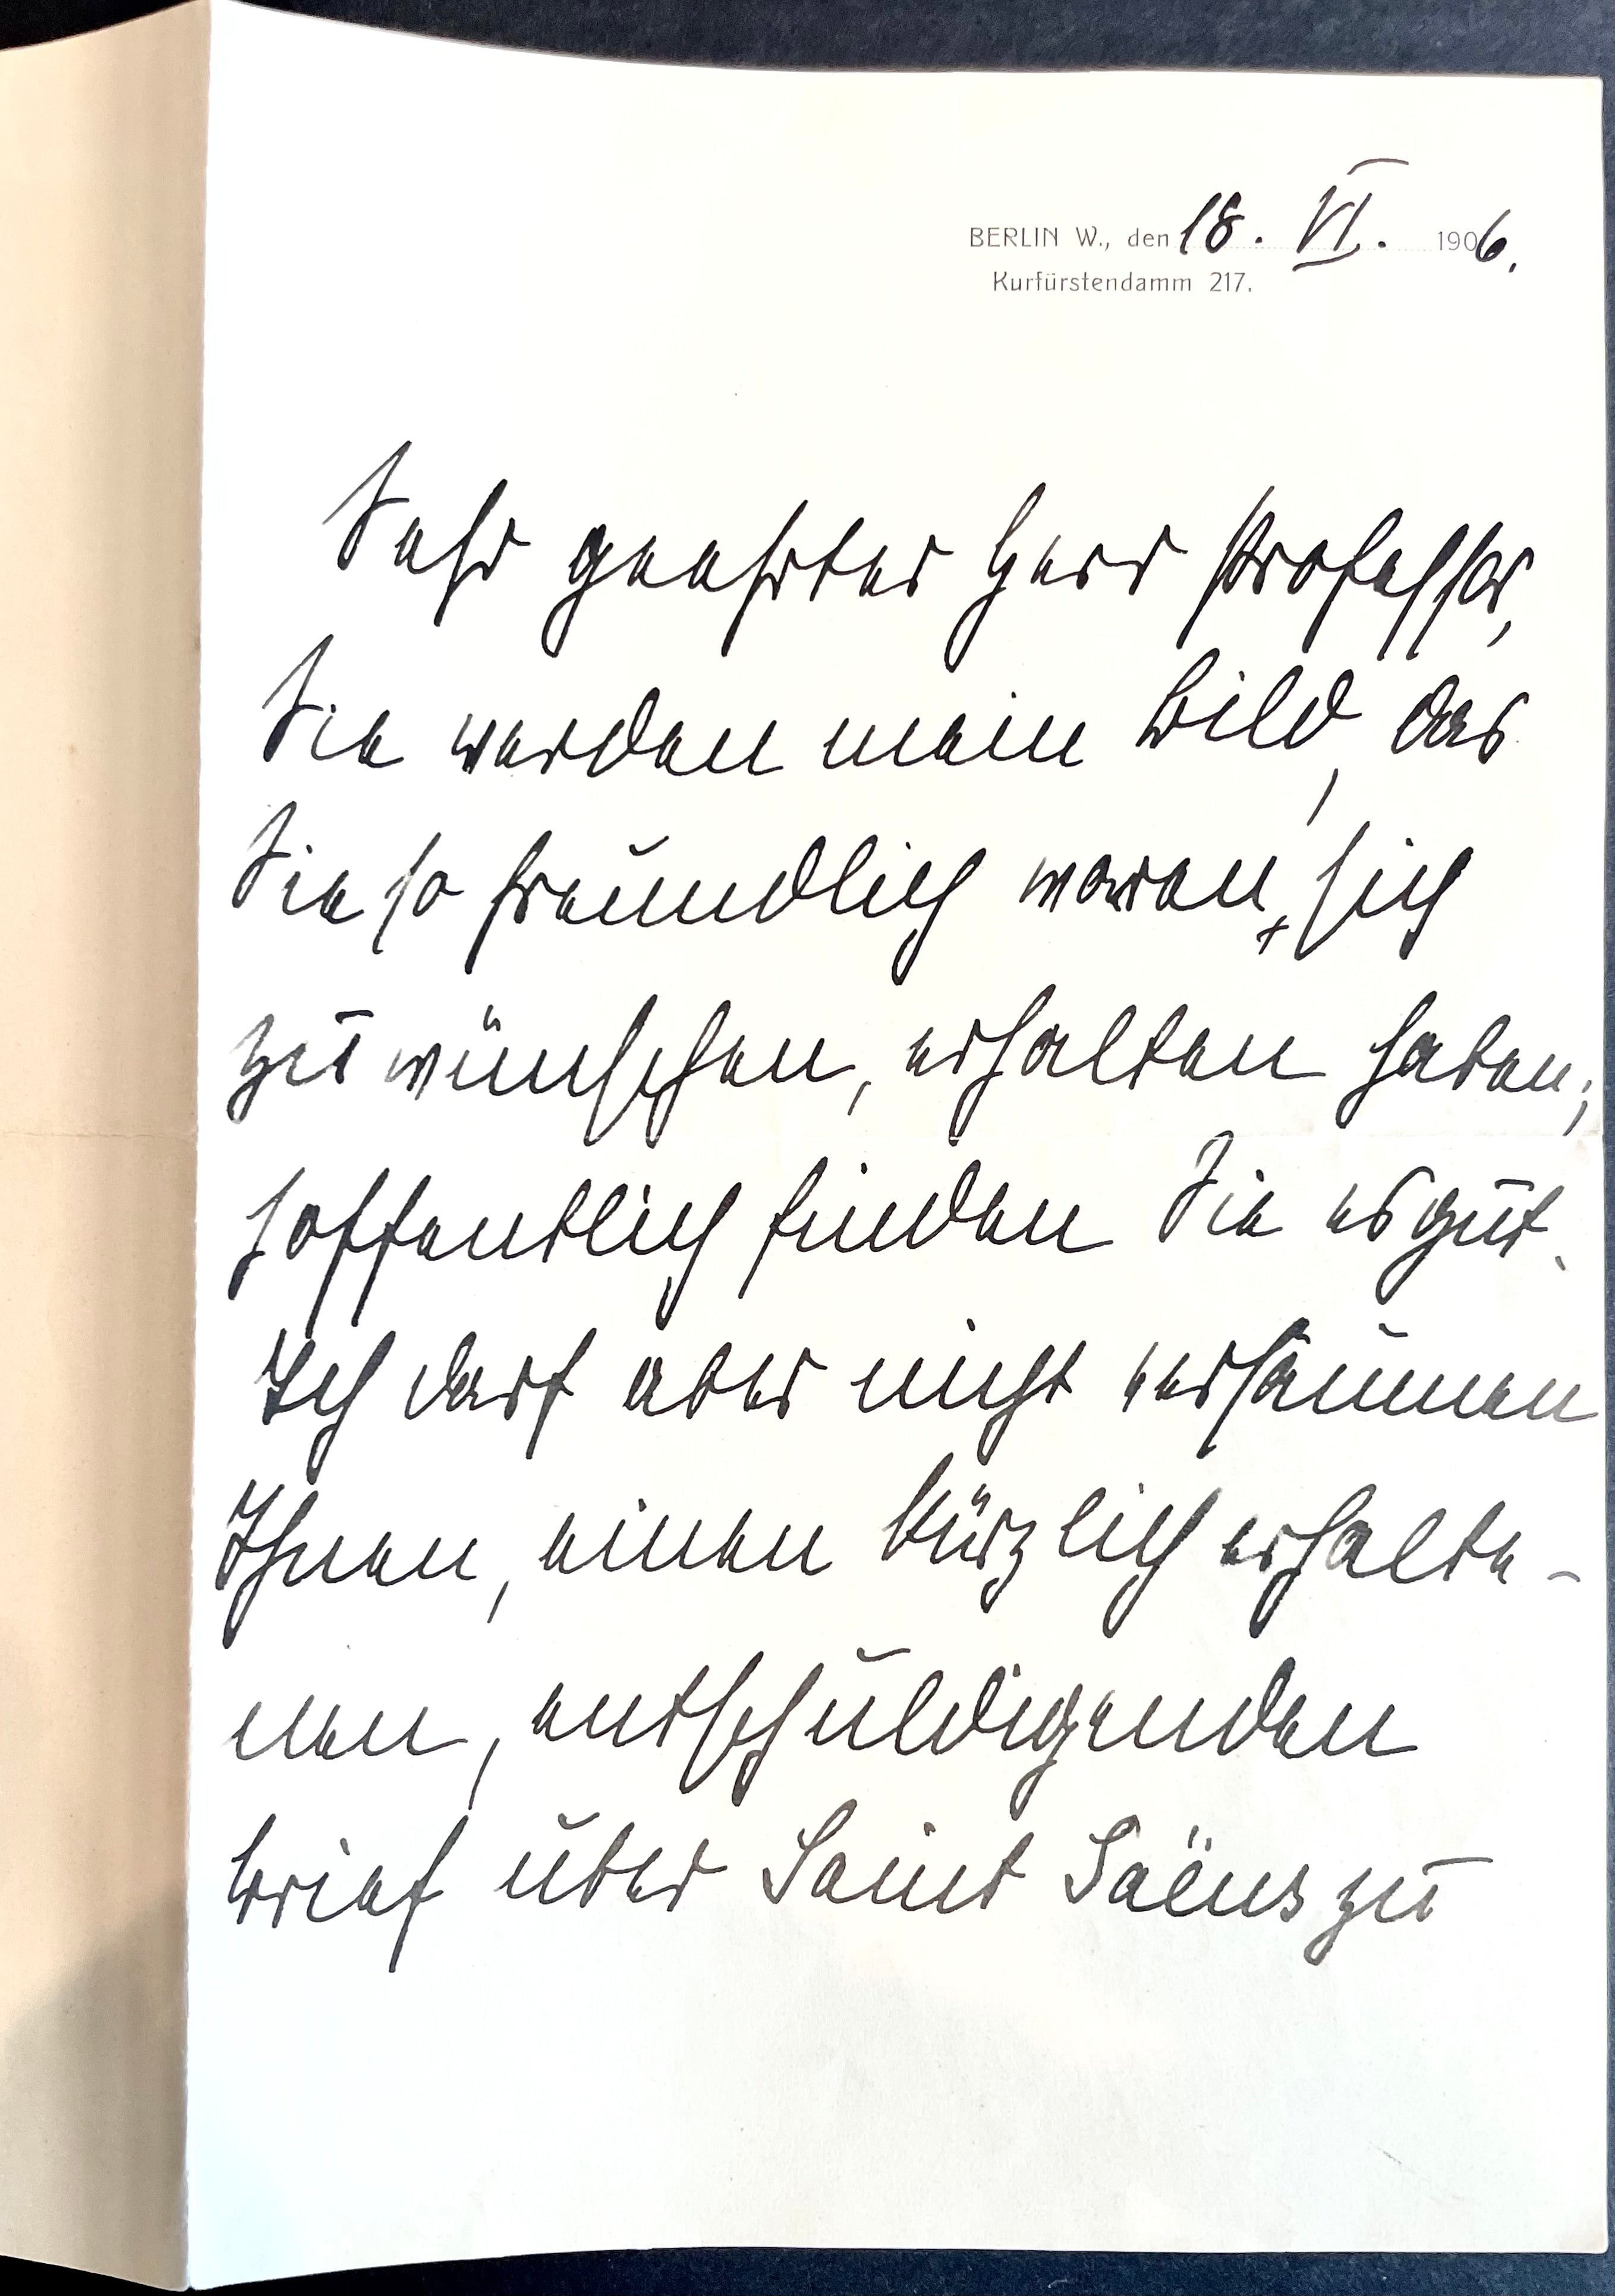 BERLIN W., den 18. VI. 1906.
Kurfürstendamm 217.
Sehr geehrter Herr Professor,
Sie werden mein Bild, das
Sie so freundlich waren, sich
zu wünschen, erhalten haben;
hoffentlich finden Sie es gut.
Ich darf aber nicht versäumen
Ihnen, einen kürzlich erhalte-
nen, entschuldigenden
Brief über Saint Saëns zu